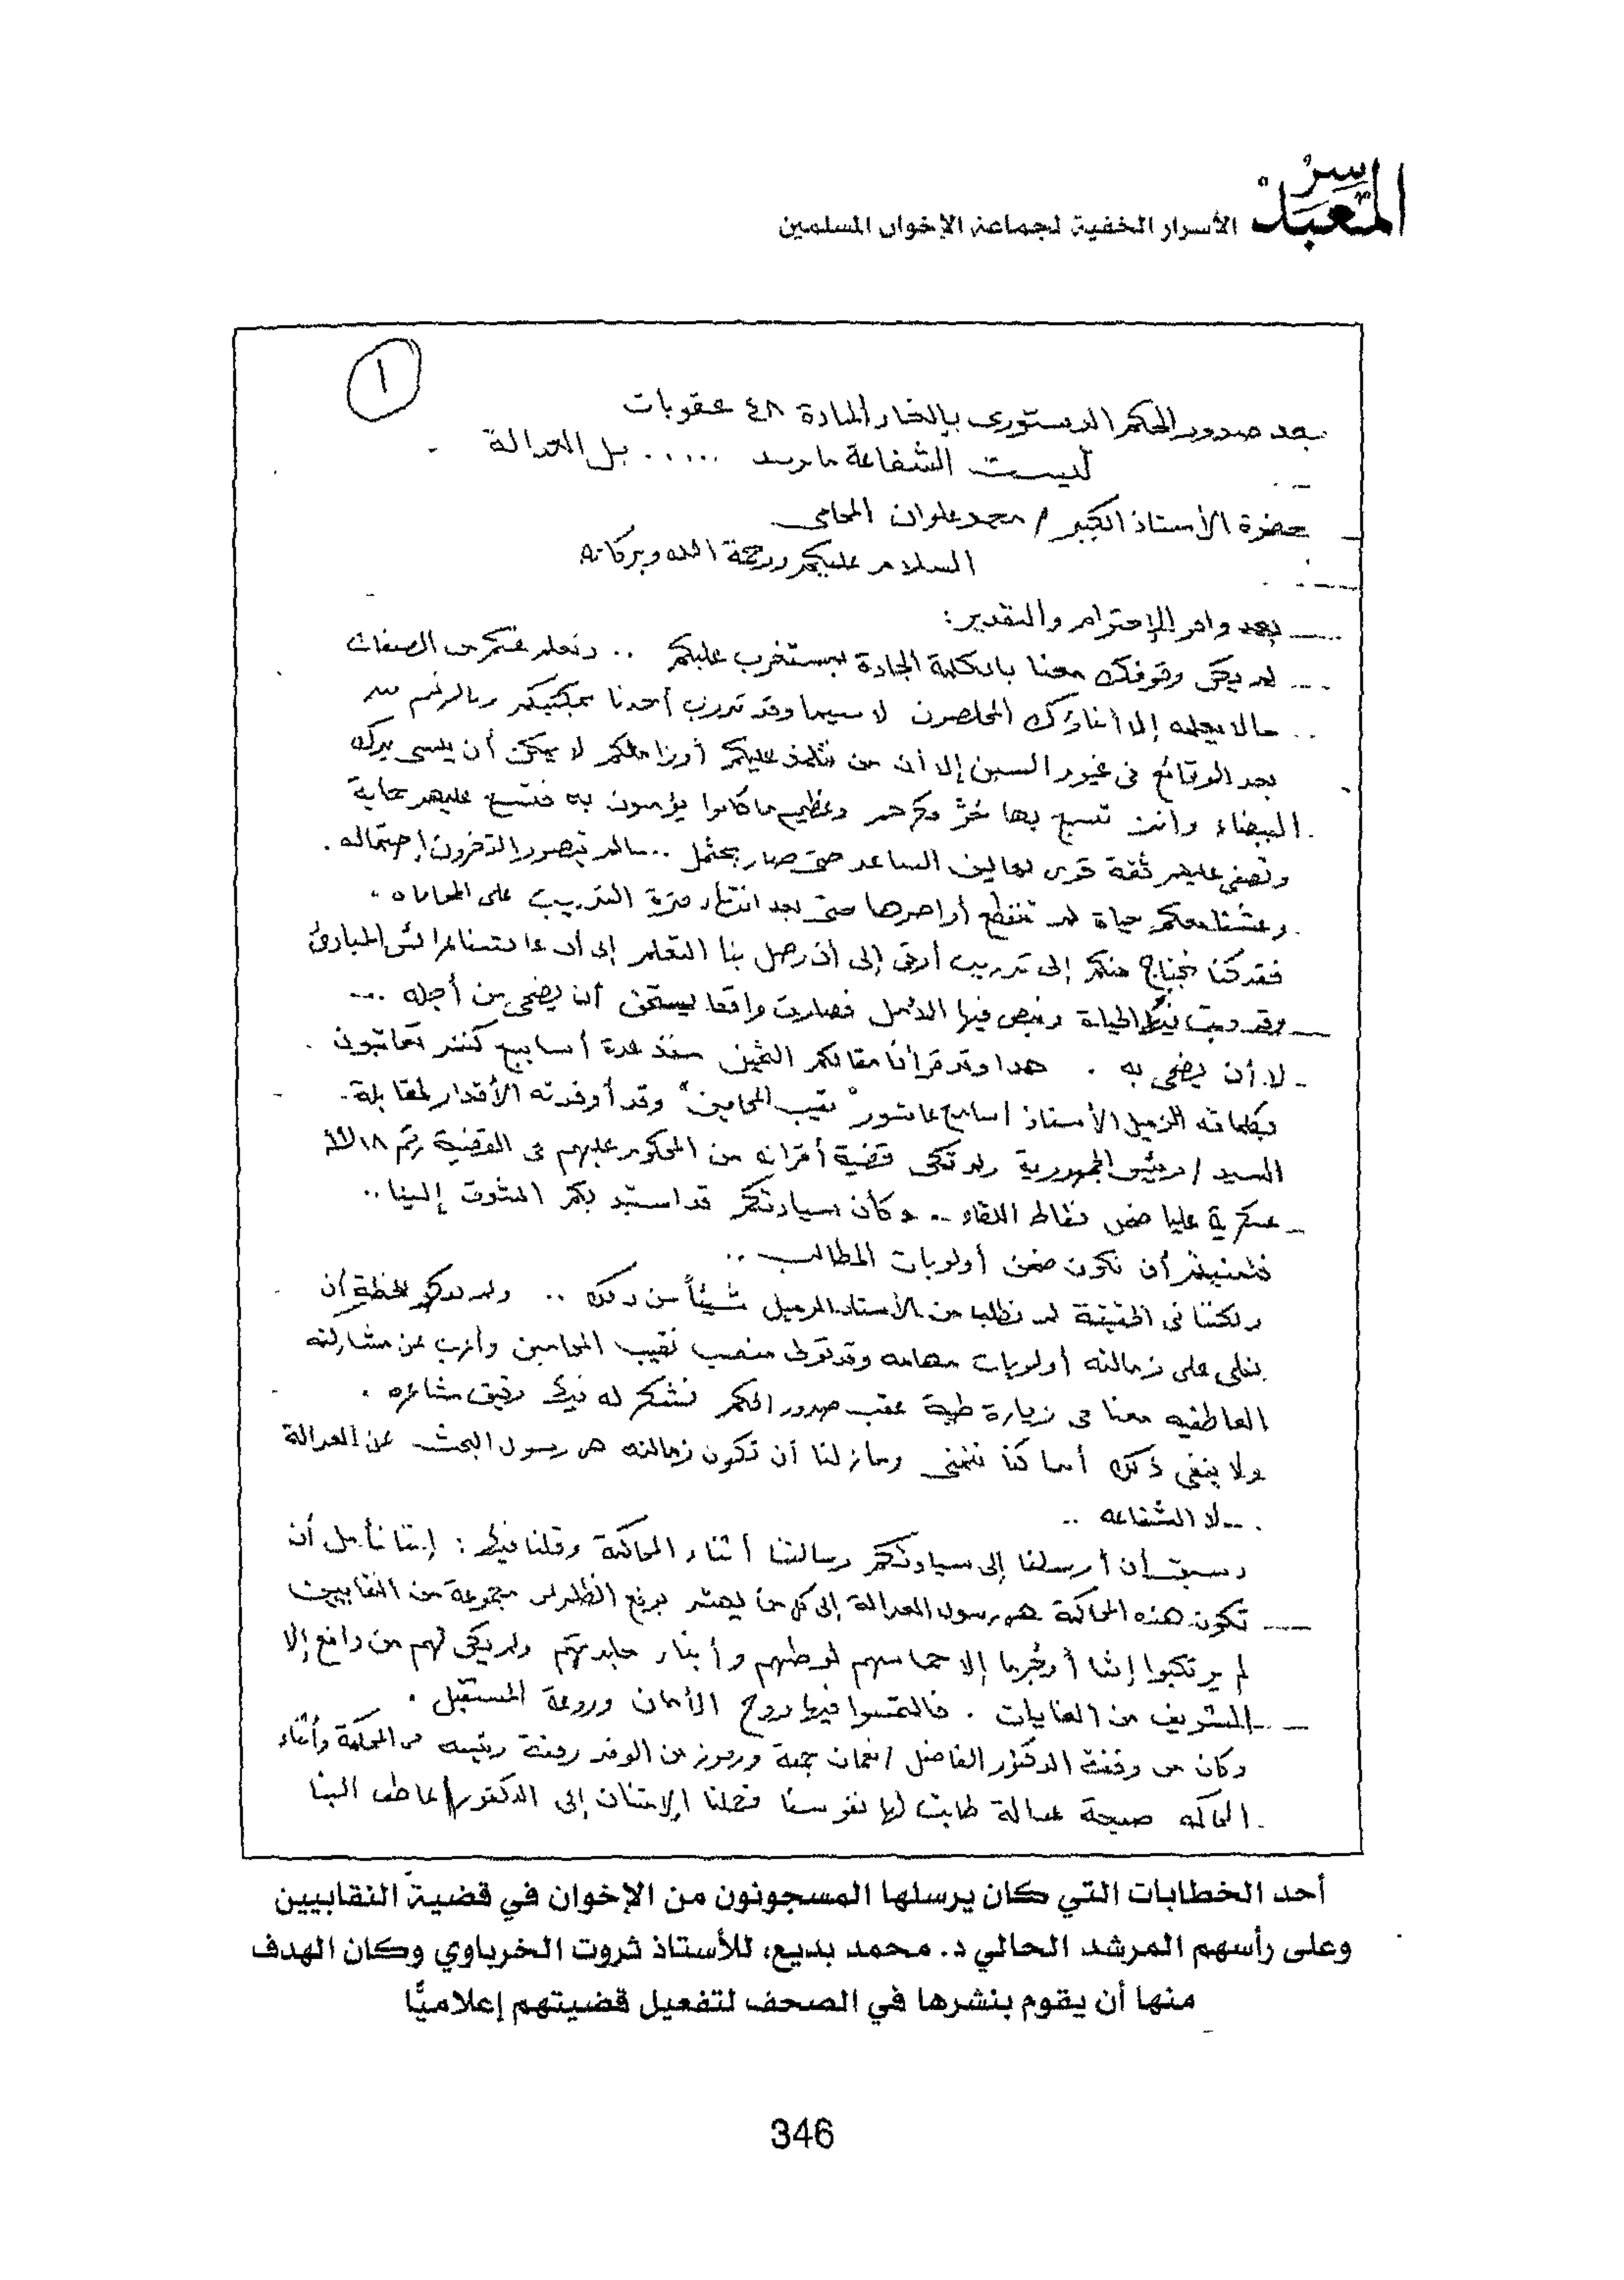 سر المعبد
الأسرار الخفية لجماعة الإخوان المسلمين
١
بعد صدور الحكم الدستورى بإلغاء المادة ٤٨ عقوبات
ليست الشفاعة ما نريد ..... بل العدالة
حضرة الأستاذ الكبير / محمد علوان المحامى
السلام عليكم ورحمة الله وبركاته
بعد وافر الإحترام والتقدير:
لم يكن وقوفك معنا بالكلمة الجادة بمستغرب عليكم .. ونعلم عنكم من الصفات
مالا يعلمه إلا أبناؤك المخلصون لا سيما وقد تدرب أحدنا بمكتبكم وبالرغم من
بعد الوقائع فى غيور السنين إلا أن من تتلمذ عليكم أو زاملكم لا يمكن أن ينسى يدك
البيضاء وأنت تسبغ بها وعظيم ما كانوا يؤمنون به عليهم حماية
وتضفى عليهم ثقة الساعد حتى صار يحتمل .. مالم يتصور الآخرون إحتماله .
وعشنا معكم حياة لم تنقطع أواصرها حتى بعد انتهاء فترة التدريب على المحاماه .
فقد كنا نحتاج منكم إلى تدريب أرقى إلى أن وصل بنا التعلم إلى أن المبادئ
وقد دبت فيها الحياة ونبض فيها الأمل فصارت واقعا يستحق أن يضحى من أجله ...
لا أن يضحى به . هذا وقد قرأنا مقالكم الثمين منذ عدة أسابيع كنتم تعاتبون
بكلماته الزميل الأستاذ / سامح عاشور "نقيب المحامين" وقد أوفدته الأقدار لمقابلة
السيد / رئيس الجمهورية ولم تكن قضية أقرانه من المحكوم عليهم فى القضية رقم ١٨
عسكرية عليا ضمن نقاط اللقاء .. وكأن سيادتكم قد استبد بكم الشوق إلينا ..
فتمنيتم أن نكون ضمن أولويات المطالب ..
ولكننا فى الحقيقة لم نطلب من الأستاذ الزميل شيئاً من ذلك .. ولم نفكر للحظة أن
نملى على زمالته أولويات مهامه وقد تولى منصب نقيب المحامين وأعرب عن مشاركته
العاطفيه معنا فى زيارة طيبة عقب صدور الحكم نشكر له فيها رقيق مشاعره .
ولا ينفى ذلك أننا كنا نتمنى ومازلنا أن تكون زمالته هى رسول البحث عن العدالة
لا الشفاعه ..
وسبق أن أرسلنا إلى سيادتكم رسالتنا أثناء المحاكمة وقلنا فيها : إننا نأمل أن
تكون هذه المحاكمة هى رسول العدالة إلى كل من يهتم برفع الظلم عن مجموعة من النقابيين
لم يرتكبوا إثما أو جرما إلا حماسهم لوطنهم وأبناء جلدتهم ولم يكن لهم من دافع إلا
الشريف من الغايات . فالتمسوا فيها روح الأمان وروعة المستقبل .
وكان من وقفة الدكتور الفاضل / نعمان جمعة ورموز من الوفد رفقة رئيسه فى المحكمة وأثناء
المحاكمه صيحة عدالة طابت لها نفوسنا فحملنا الإمتنان إلى الدكتور / عاطف البنا
أحد الخطابات التي كان يرسلها المسجونون من الإخوان في قضية النقابيين
وعلى رأسهم المرشد الحالي د. محمد بديع، للأستاذ ثروت الخرباوي وكان الهدف
منها أن يقوم بنشرها في الصحف لتفعيل قضيتهم إعلاميًّا
346